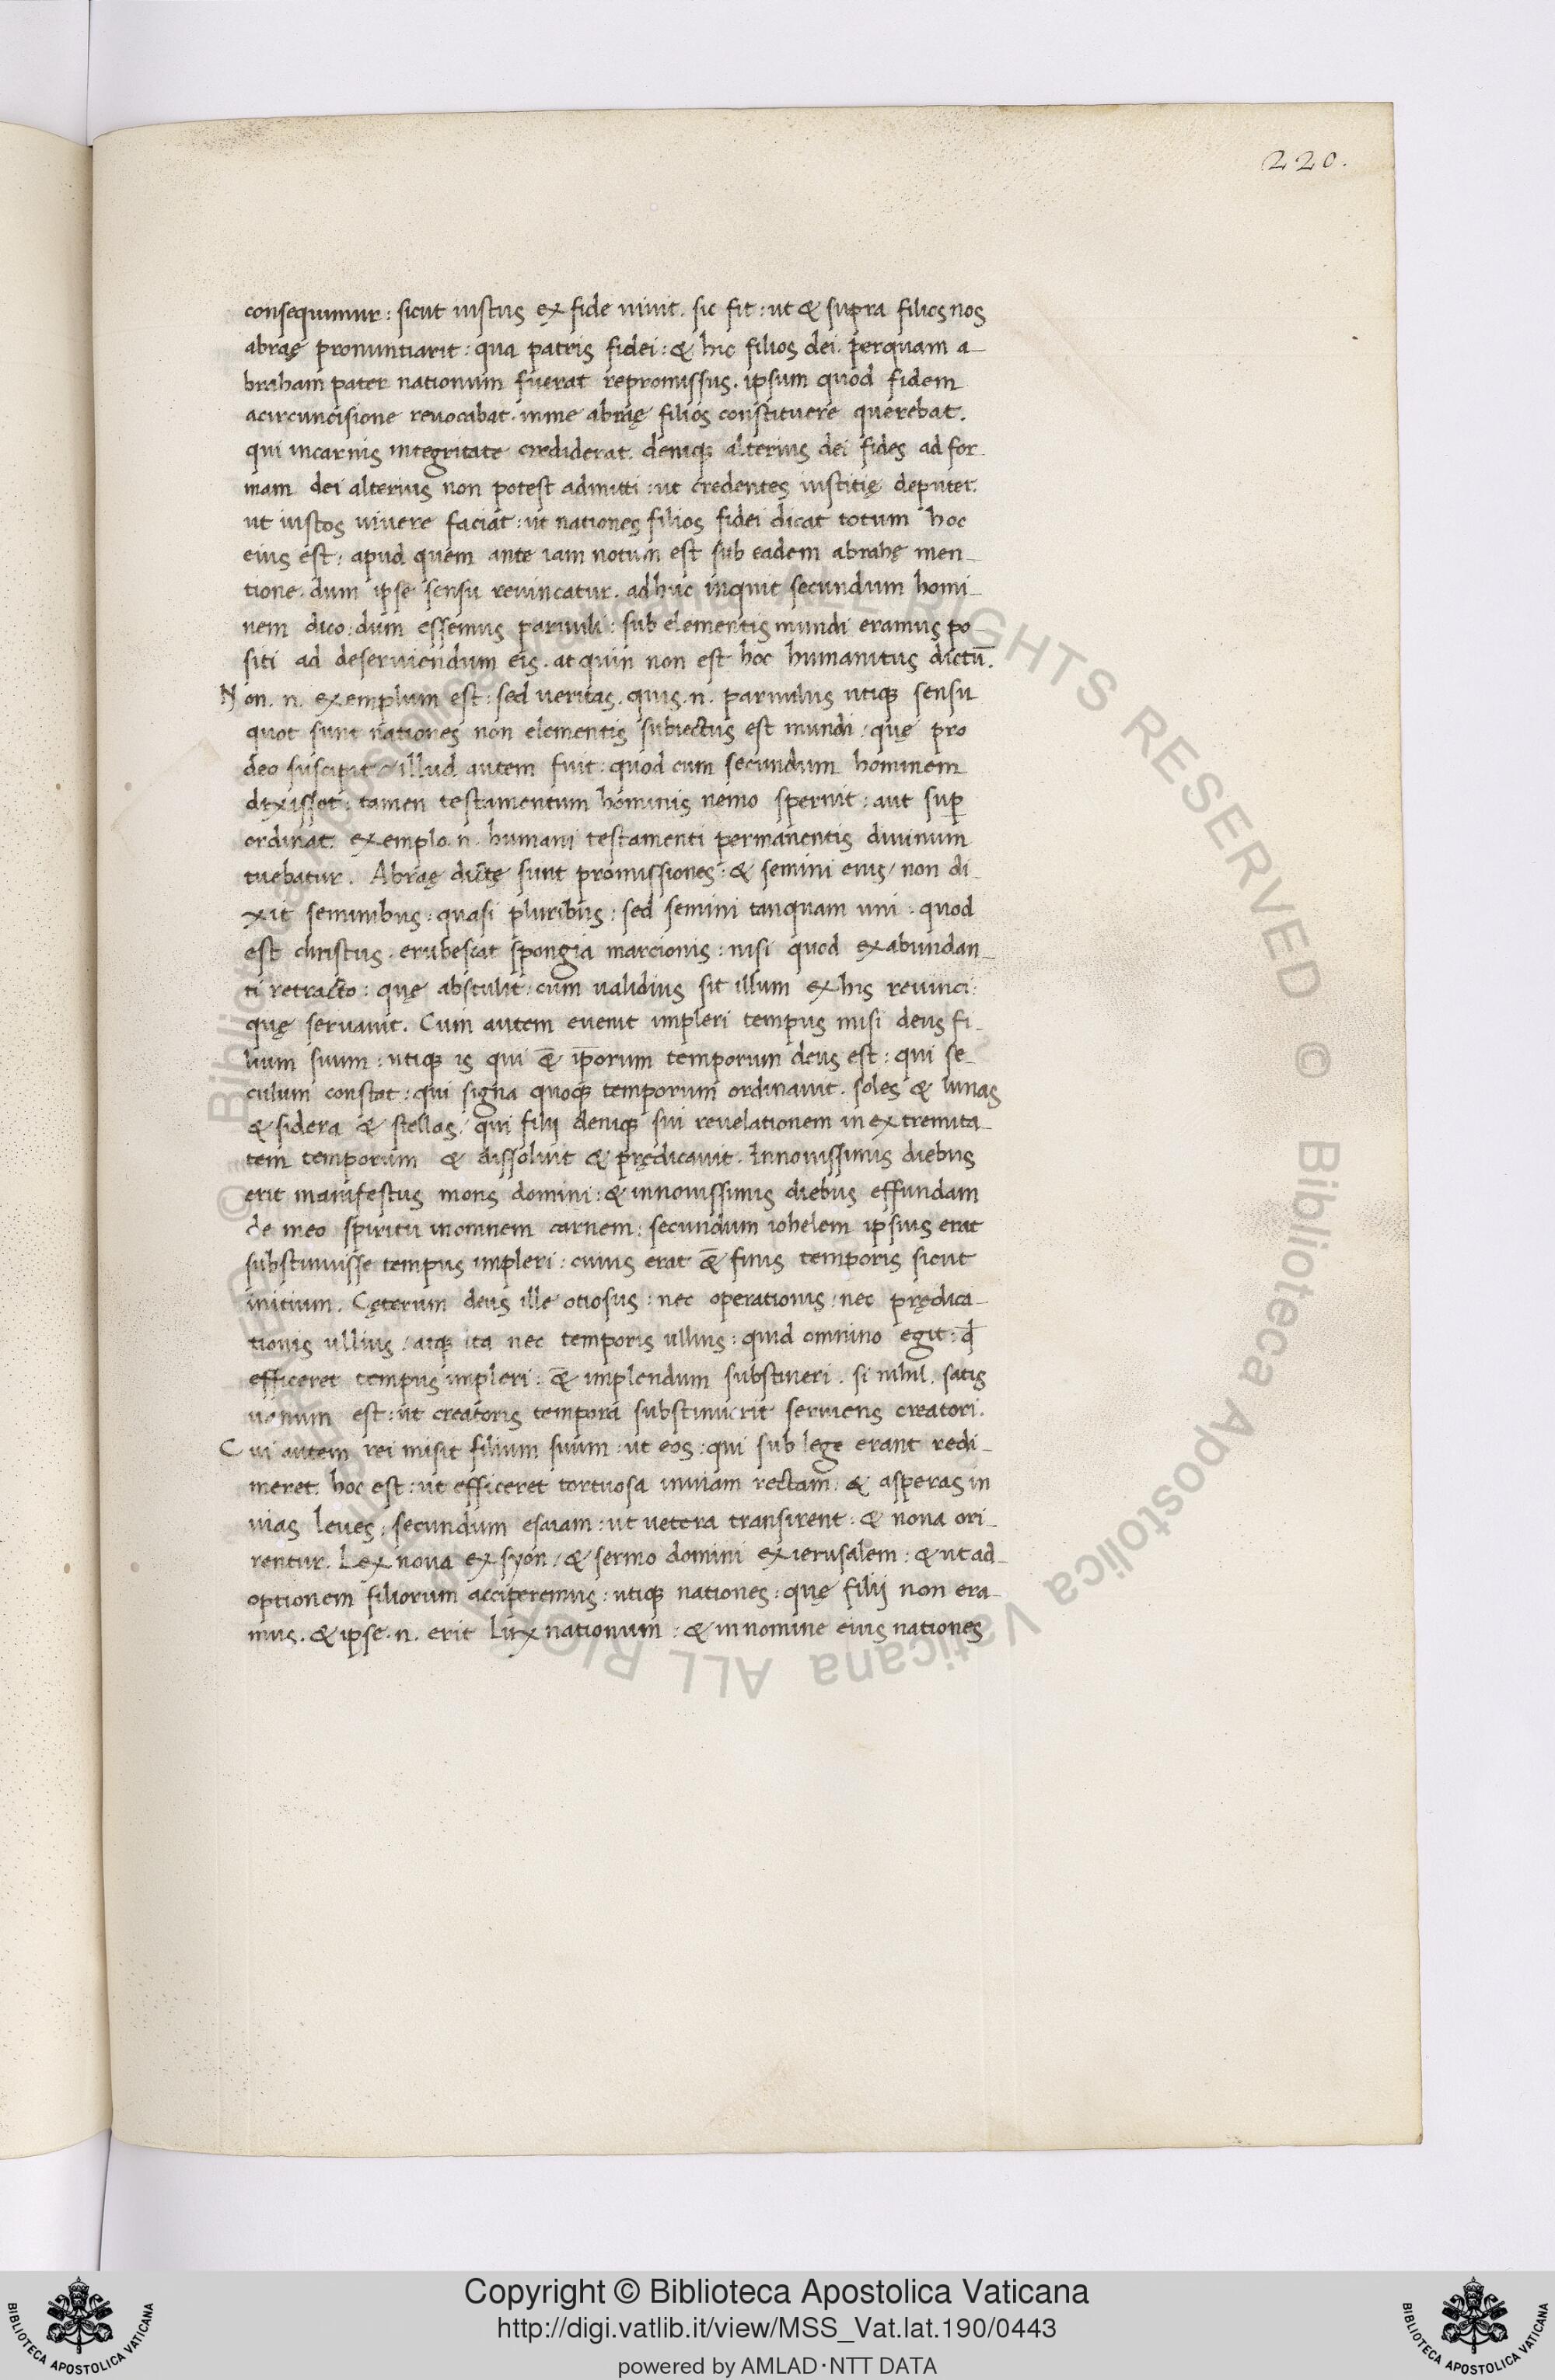 220.
consequimur : sicut iustus ex fide uiuit . sic fit : ut & supra filios nos
abraę pronuntiarit : qua patris fidei : & hic filios dei . perquam a-
braham pater nationum fuerat repromissus . ipsum quod fidem
acircuncisione reuocabat . inme abraę filios constituere querebat .
qui incarnis integritate crediderat . deniq; alterius dei fides ad for-
mam dei alterius non potest admitti : ut credentes iustitię deputet .
ut iustos uiuere faciat : ut nationes filios fidei dicat totum hoc
eius est : apud quem ante iam notum est sub eadem abrahę men-
tione . dum ipse sensu reuincatur . adhuc inquit secundum homi-
nem dico : dum essemus paruuli : sub elementis mundi eramus po
siti ad deseruiendum eis . at quin non est hoc humanitus dictū .
Non . n . exemplum est : sed ueritas . quis . n . paruulus utiq; sensu
quot sunt nationes non elementis subiectus est mundi / quę pro
deo suscipit / illud autem fuit : quod cum secundum hominem
dixisset : tamen testamentum hominis nemo spernit : aut sup̄
ordinat . exemplo . n . humani testamenti permanentis diuinum
tuebatur . Abraę dictę sunt promissiones : & semini eius / non di-
xit seminibus : quasi pluribus : sed semini tanquam uni : quod
est christus . erubescat spongia marcionis : nisi quod exabundan-
ti retracto : quę abstulit : cum ualidius sit illum ex his reuinci :
quę seruauit . Cum autem euenit impleri tempus misi deus fi-
lium suum : utiq; is qui ē ip̄orum temporum deus est : qui se-
culum constat : qui signa quoq; temporum ordinauit . soles & lunas
& sidera & stellas / qui filij deniq; sui reuelationem in extremita-
tem temporum & dissoluit & prędicauit . Innouissimis diebus
erit manifestus mons domini : & innouissimis diebus effundam
de meo spiritu inomnem carnem : secundum iohelem ipsius erat
substinuisse tempus impleri : cuius erat & finis temporis sicut
initium . Cęterum deus ille otiosus : nec operationis : nec prędica-
tionis ullius / atq; ita nec temporis ullius : quid omnino egit : q̄
efficeret tempus impleri : & implendum substineri . si nihil . satis
uanum est : ut creatoris tempora substinuerit seruiens creatori .
Cui autem rei misit filium suum : ut eos : qui sub lege erant redi-
meret . hoc est : ut efficeret tortuosa inuiam rectam : & asperas in
uias leues : secundum esaiam : ut uetera transirent : & noua ori-
rentur . Lex noua ex syon / & sermo domini ex ierusalem : & ut ad-
optionem filiorum acciperemus : utiq; nationes : quę filij non era-
mus . & ipse . n . erit Lux nationum : & innomine eius nationes
© Biblioteca Apostolica Vaticana ALL RIGHTS RESERVED © Biblioteca Apostolica Vaticana ALL RIGHTS RESERVED
Copyright © Biblioteca Apostolica Vaticana
http://digi.vatlib.it/view/MSS_Vat.lat.190/0443
powered by AMLAD·NTT DATA
BIBLIOTECA APOSTOLICA VATICANA
BIBLIOTECA APOSTOLICA VATICANA